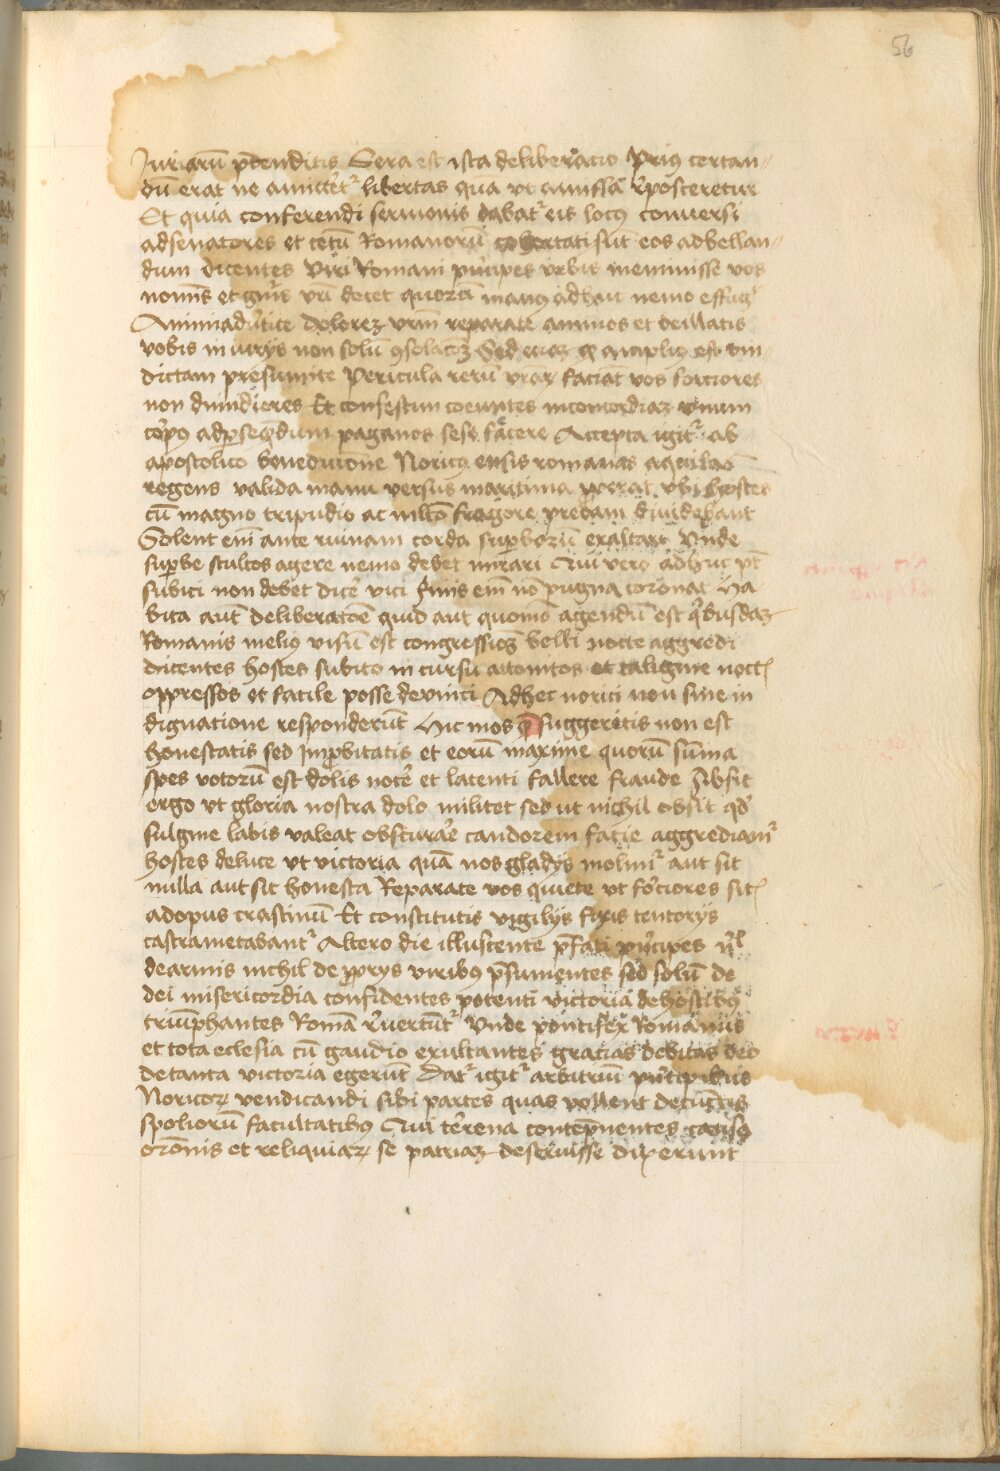 56
Iuriarū p̄tenditis Sera est ista deliberacio Priꝰ certan
dū erat ne amitteret᷑ libertas quā vt amissā r̄posceretur
Et quia conferendi sermonis dabat᷑ eis locꝰ conversi
ad senatores et cetū Romanorū cohortati sūt eos ad bellan
dum dicentes Viri Romani pͥncipes vrbis meminisse vos
nomīs et gn̄is vr̄i decet quorum manꝰ adhuc nemo effug
Animadūtite dolorez vrm̄ reparate animos et bellatis
vobis iniurys non solū ꝯsolacōeꝫ Sed eciaꝫ qͩ ampliꝰ est vin
dictam presumite Pericula rerū vr̄aꝝ faciāt vos forciores
non diuidieres Et confestim coeuntes in concordiaꝫ vnum
corpꝰ ad ꝑseqͥndum paganos sese fācere Accepta igit᷑ ab
apostolico benedictione Noricꝰ ensis romanas aquilas
regens valida manu versus maritima ꝓꝑat vbi hostes
cū magno tripudio ac mlto fragore predam diuidebant
Solent em̄ ante ruinam corda suꝑborū exaltari Vnde
suꝑbe stultos agere nemo debet mirari Qui vero adhuc pt̄
subici non debet dicē vici finis em̄ nō pugna coronat Ha
bita aut̄ deliberatōe quid aut quomo agendū est qͥbusdaꝫ
Romanis meliꝰ visū est congressioꝫ belli nocte aggredi
dicentes hostes subito in cursu attonitos et caligine noct
oppressos et facile posse devinci Ad hec norici non sine in
dignatione responderūt Hic mos qͥ suggeritis non est
honestatis sed Imꝓbitatis et eorū maxime quorū sūma
spes votorū est dolis nocē et latenti fallere fraude Absit
ergo vt gloria nostra dolo militet sed ut nichil obsit qd̓
fuligine labis valeat obscurare candorem facie aggrediam᷑
hostes de luce vt victoria quā nos gladys molim᷑ aut sit
nulla aut sit honesta Reparate vos quiete vt forciores sit
ad opus crastinū Et constitutis vigilys fixis tentorys
castrametabant᷑ Altero die illuscente p̄fati pͥncipes nl̄
de armis nichil de ꝓprys viribꝰ p̄sumentes sed solū de
dei misericordia confidentes potenti victoria de hostibꝰ
triūphantes Romā r̄vertūt᷑ Vnde pontifex Romanus
et tota eclesia cū gaudio exultantes gracias debitas deo
de tanta victoria egerūt Dat᷑ igit᷑ arbitriū pͥncipibus
Noricoꝝ vendicandi sibi partes quas vollent de cūctis
spoliorū facultatibꝰ Qui terrena contēpnentes causa
orōnis et reliquiaꝝ se patriaꝫ deseruisse dixerunt